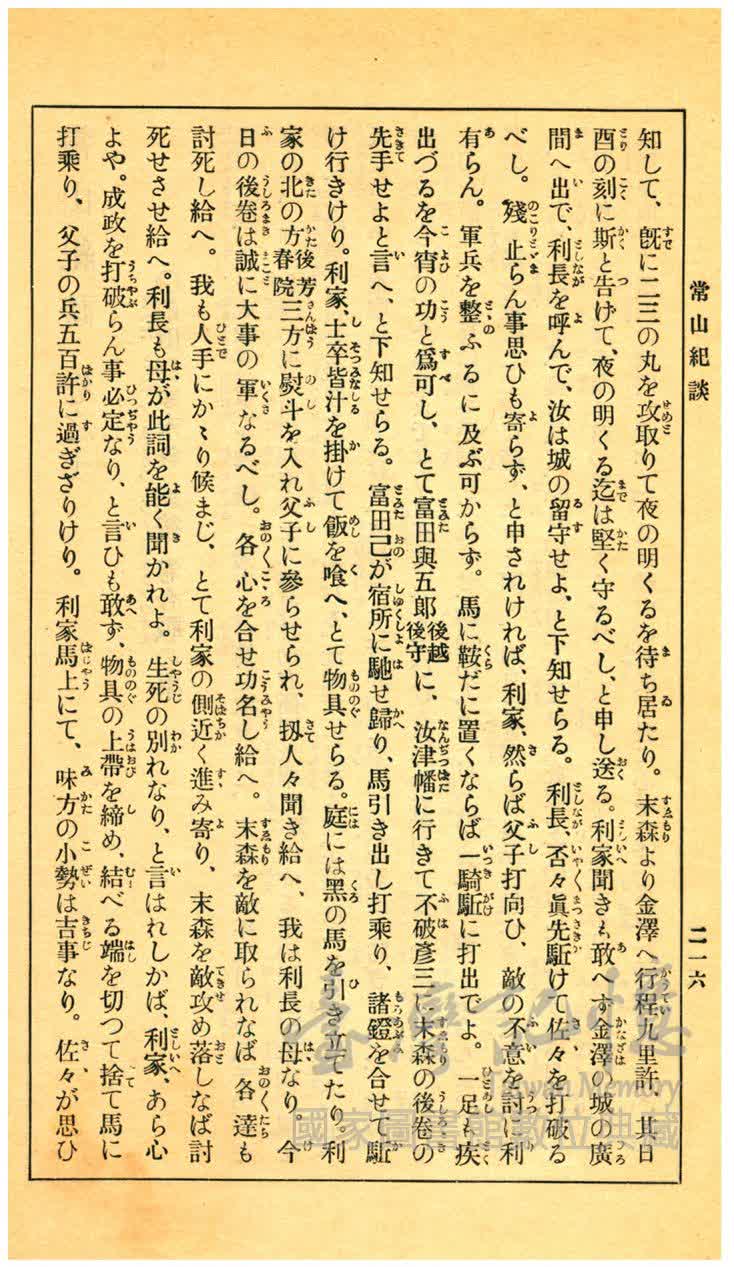 常山紀談
二一六
知して、既に二三の丸を攻取りて夜の明くるを待ち居たり。末森より金澤へ行程九里許、其日
酉の刻に斯と告げて、夜の明くる迄は堅く守るべし、と申し送る。利家聞きも敢へず金澤の城の廣
間へ出で、利長を呼んで、汝は城の留守せよ、と下知せらる。利長、否々眞先駈けて佐々を打破る
べし。殘止らん事思ひも寄らず、と申されければ、利家、然らば父子打向ひ、敵の不意を討に利
有らん。軍兵を整ふるに及ぶ可からず。馬に鞍だに置くならば一騎駈に打出でよ。一足も疾
出づるを今宵の功と爲可し、とて富田與五郞後越後守に、汝津幡に行きて不破彥三に末森の後卷の
先手せよと言へ、と下知せらる。富田己が宿所に馳せ歸り、馬引き出し打乘り、諸鐙を合せて駈
け行きけり。利家、士卒皆汁を掛けて飯を喰へ、とて物具せらる。庭には黑の馬を引き立てたり。利
家の北の方後芳春院三方に熨斗を入れ父子に參らせられ、扨人々聞き給へ、我は利長の母なり。今
日の後卷は誠に大事の軍なるべし。各心を合せ功名し給へ。末森を敵に取られなば各達も
討死し給へ。我も人手にかゝり候まじ、とて利家の側近く進み寄り、末森を敵攻め落しなば討
死せさせ給へ。利長も母が此詞を能く聞かれよ。生死の別れなり、と言はれしかば、利家、あら心
よや。成政を打破らん事必定なり、と言ひも敢ず、物具の上帶を締め、結べる端を切つて捨て馬に
打乘り、父子の兵五百許に過ぎざりけり。利家馬上にて、味方の小勢は吉事なり。佐々が思ひ
臺灣記憶
Taiwan Memory
國家圖書館數位典藏